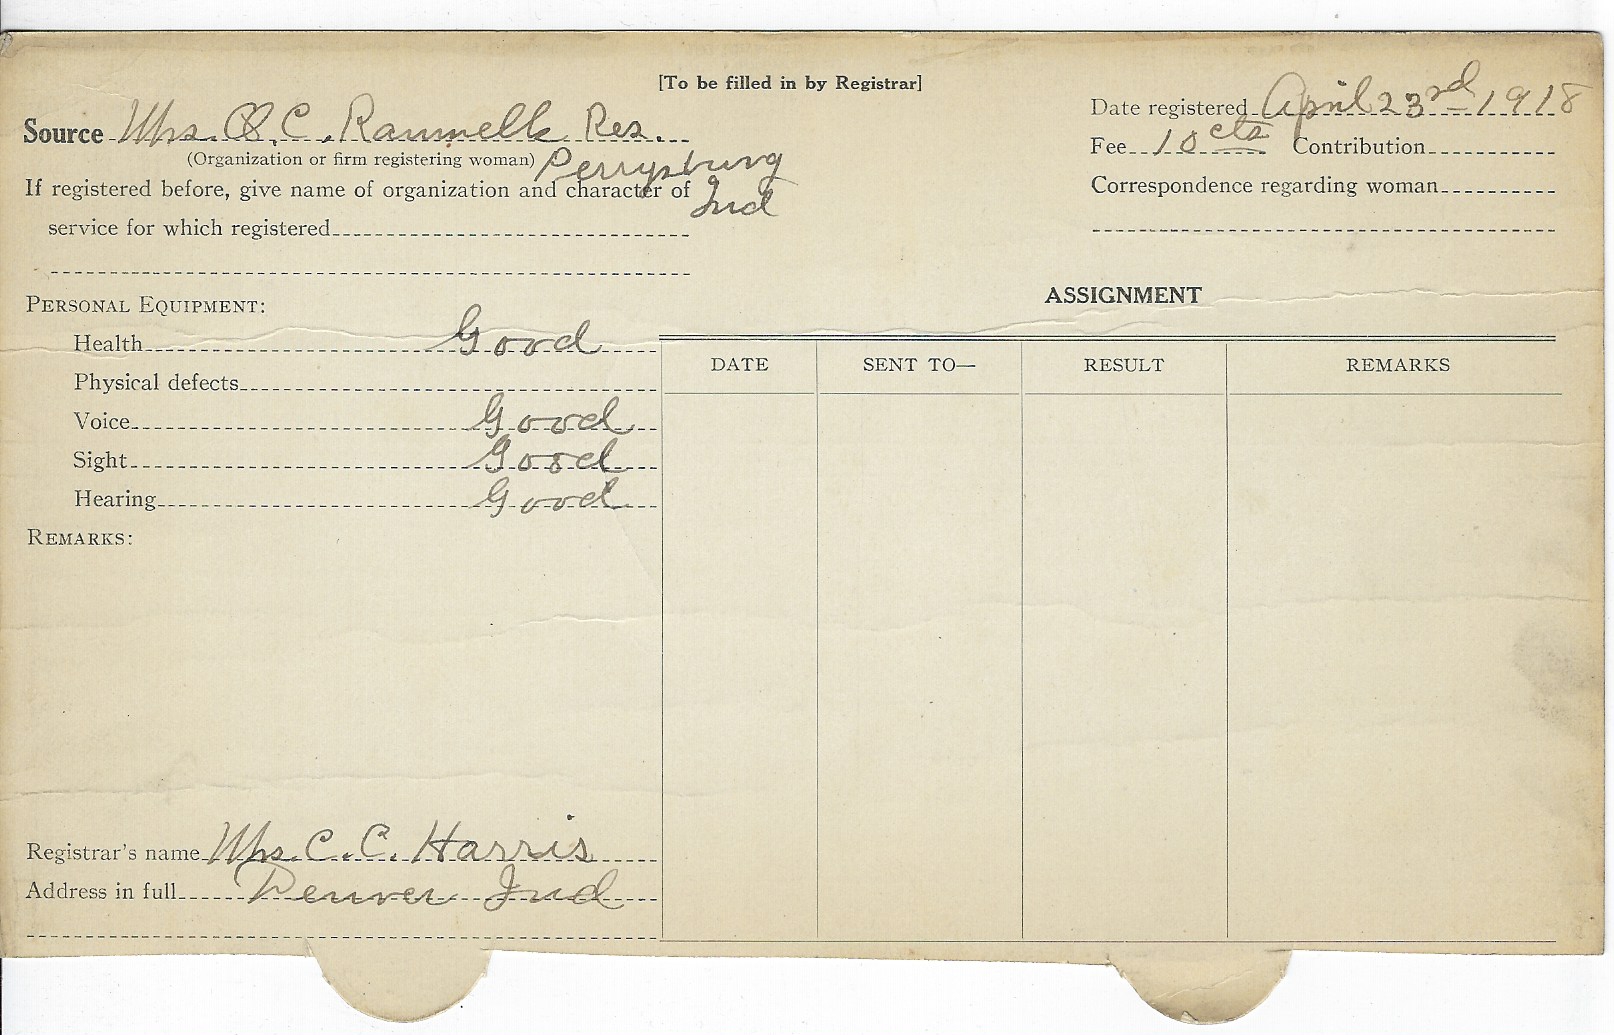 [To be filled in by Registrar]
Source Mrs. C. Rannells Res.
(Organization or firm registering woman) Perrysburg
If registered before, give name of organization and character of Ind
service for which registered
Date registered April 23rd 1918
Fee 10 cts Contribution
Correspondence regarding woman
PERSONAL EQUIPMENT:
Health Good
Physical defects
Voice Good
Sight Good
Hearing Good
REMARKS:
ASSIGNMENT
DATE SENT TO— RESULT REMARKS
Registrar's name Mrs. C. C. Harris
Address in full Denver Ind